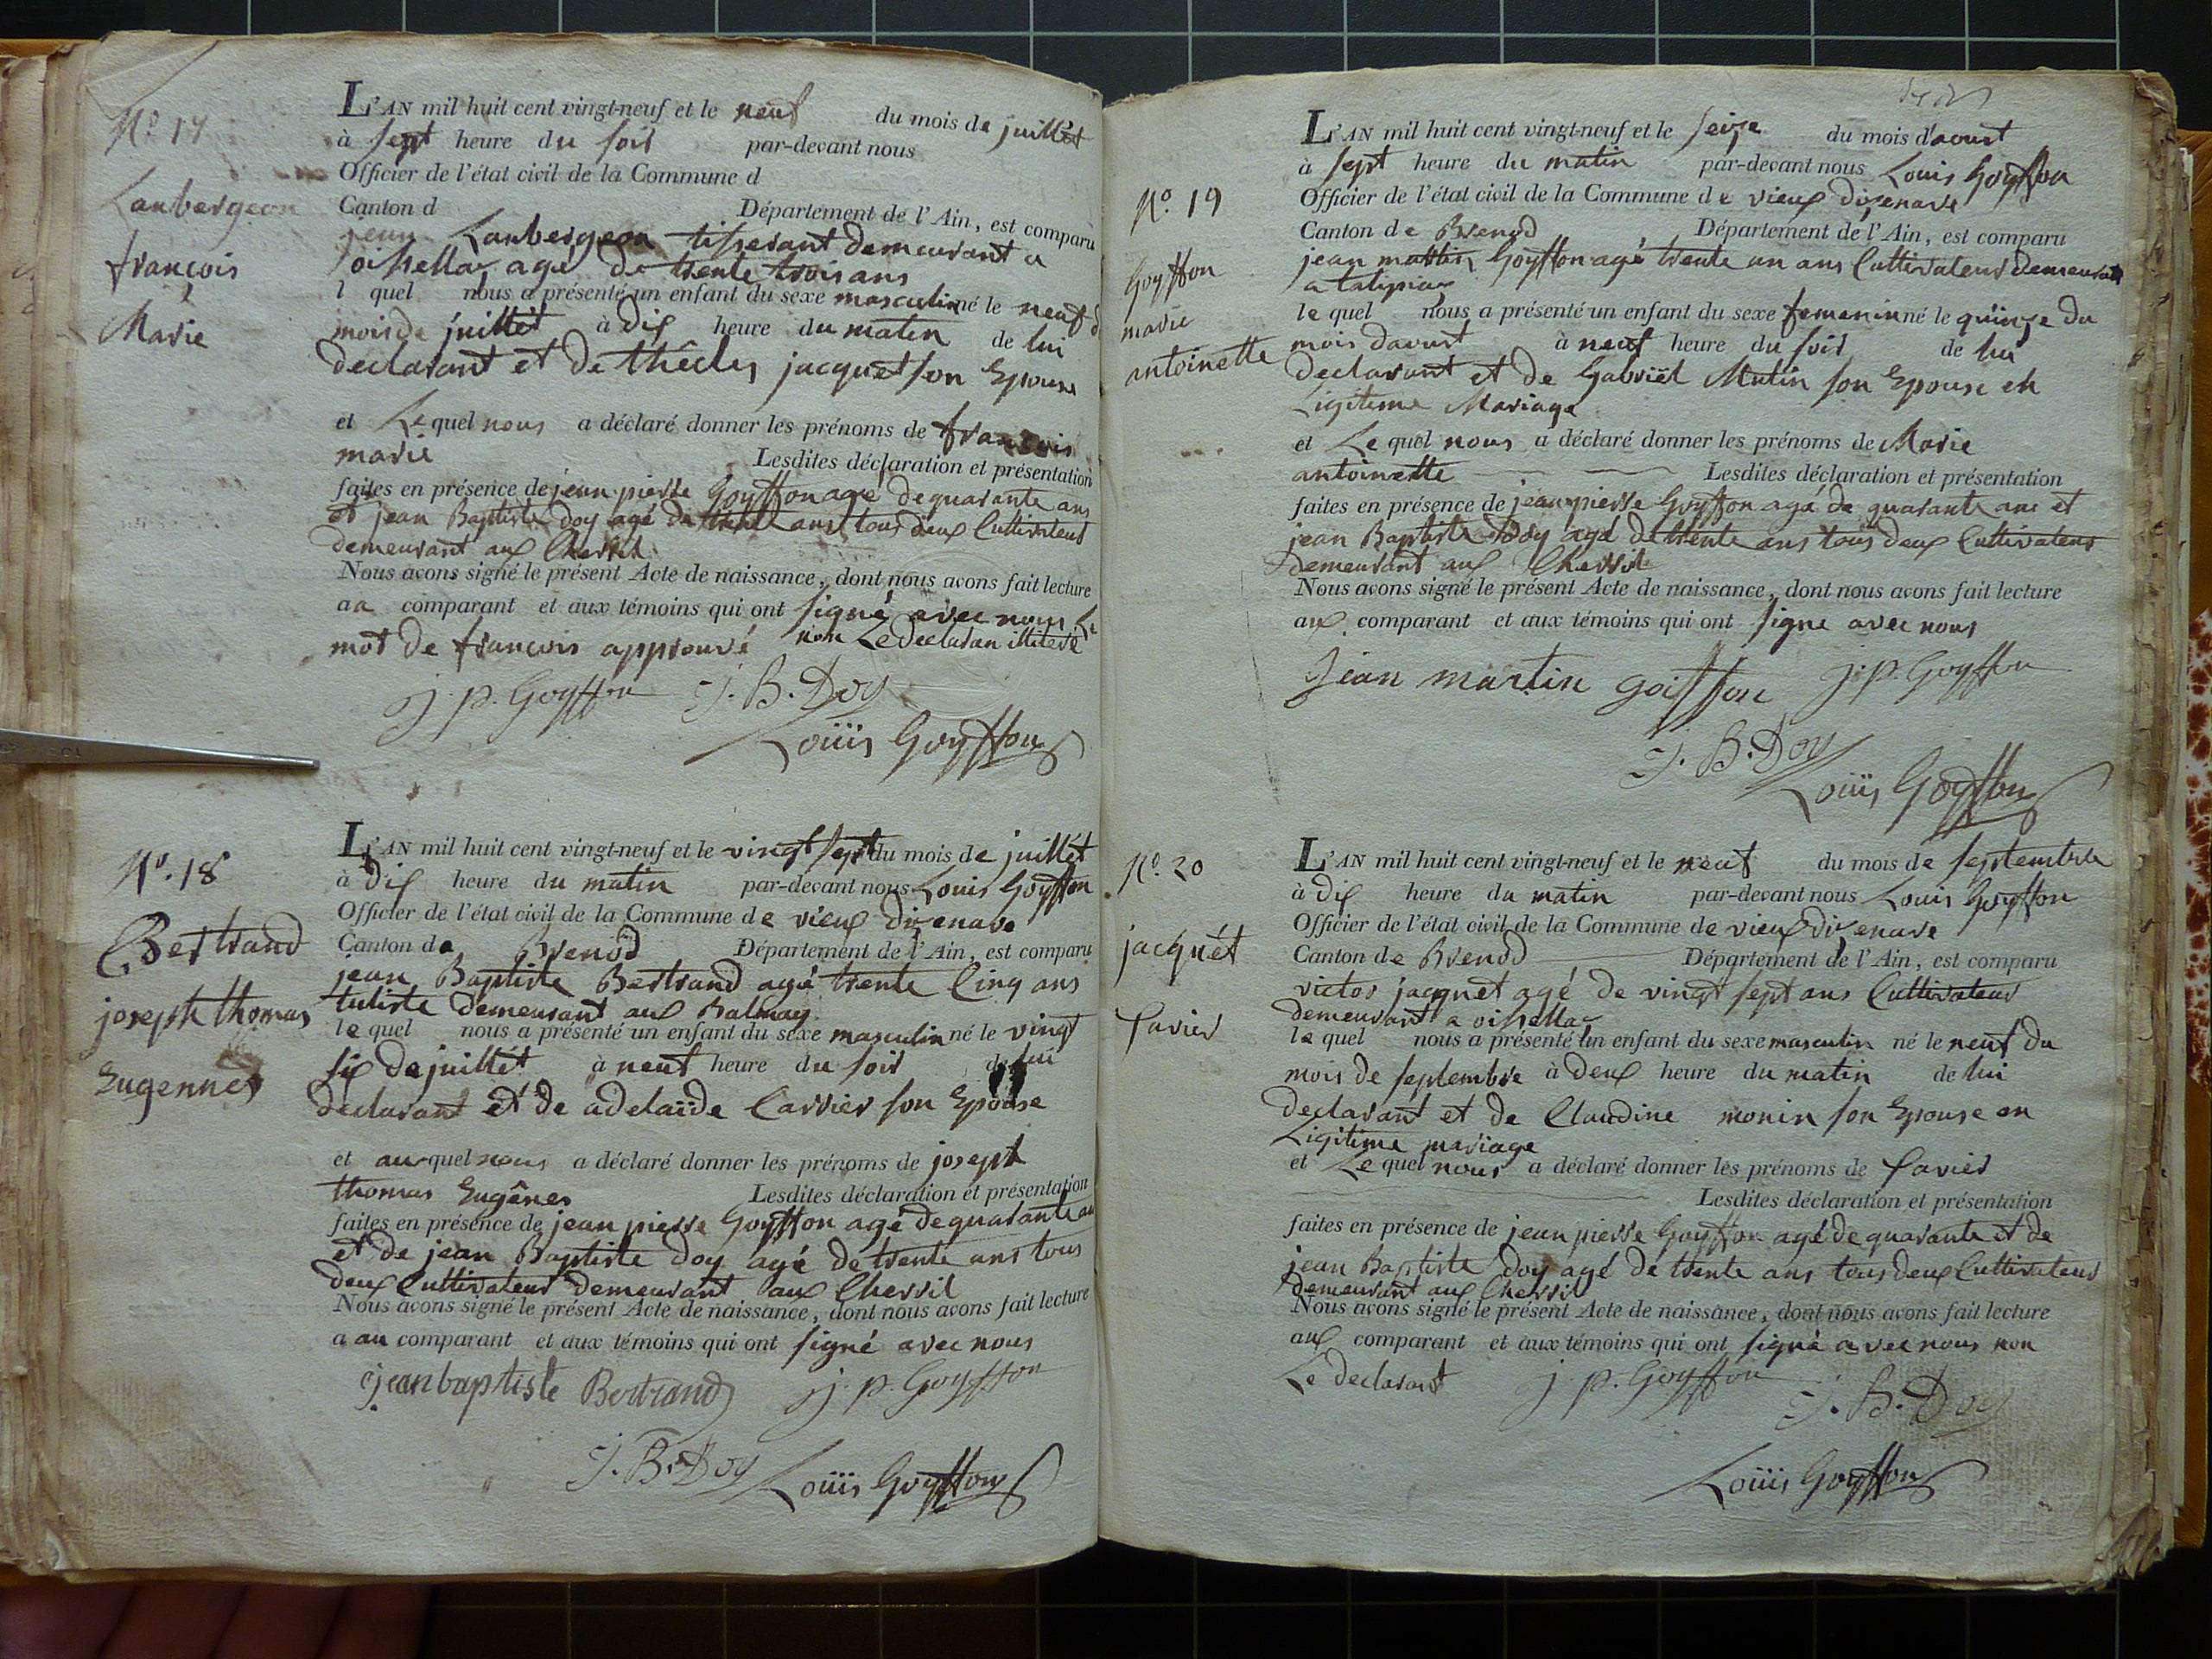 N.o 17
Laubergeon
françois
Marie
L'AN mil huit cent vingt-neuf et le neuf du mois de juillét
à sept heure du soir par-devant nous
Officier de l'état civil de la Commune d
Canton d Département de l'Ain, est comparu
jean Laubergeon tisserant demeurant a
oissellaz agé de trente trois ans
l quel nous a présenté un enfant du sexe masculin né le neuf d
mois de juillét à dix heure du matin de lui
declarant et de thécles jacquet son Epouse
et Le quel nous a déclaré donner les prénoms de françois
marie Lesdites déclaration et présentation
faites en présence de jean pierre Goyffon agé de quarante ans
et jean Baptiste Doy agé de trente ans tous deux Cultivateur
demeurant aux Chevril
Nous avons signé le présent Acte de naissance, dont nous avons fait lecture
au comparant et aux témoins qui ont signé avec nous Le
mot de françois approuvé non Le declaran illiteré
j. p. Goyffon J. B. Doy
Louïs Goyffon
N.o 18
Bertrand
joseph thomas
Eugennes
L'AN mil huit cent vingt-neuf et le vingt sept du mois de juillét
à dix heure du matin par-devant nous Louis Goyffon
Officier de l'état civil de la Commune de vieux dizenave
Canton de Brenod Département de l'Ain, est comparu
jean Baptiste Bertrand agé trente Cinq ans
tuliste demeurant aux Balmay
le quel nous a présenté un enfant du sexe masculin né le vingt
six de juillét à neuf heure du soir de lui
declarant et de adelaïde Carrier son Epouse
et au quel nous a déclaré donner les prénoms de joseph
thomas Eugênes Lesdites déclaration et présentation
faites en présence de jean pierre Goyffon agé de quarante an
et de jean Baptiste Doy agé de trente ans tous
deux Cultivateur demeurant aux Chevril
Nous avons signé le présent Acte de naissance, dont nous avons fait lecture
a au comparant et aux témoins qui ont signé avec nous
jean baptiste Bertrand j. p. Goyffon
J. B. Doy Louïs Goyffon
N.o 19
Goyffon
marie
antoinette
L'AN mil huit cent vingt-neuf et le seize du mois d'aoust
à sept heure du matin par-devant nous Louis Goyffon
Officier de l'état civil de la Commune de vieux dizenave
Canton de Brenod Département de l'Ain, est comparu
jean mattin Goyffon agé trente un ans Cultivateur demeurant
a talipiaz
le quel nous a présenté un enfant du sexe femenin né le quinze du
mois daoust à neuf heure du soir de lui
declarant et de Gabriël Mutin son Epouse en
Ligitime Mariage
et Le quel nous a déclaré donner les prénoms de Marie
antoinette Lesdites déclaration et présentation
faites en présence de jean pierre Goyffon agé de quarante ans et
jean Baptiste Doy agé de trente ans tous deux Cultivateur
demeurant aux Chevril
Nous avons signé le présent Acte de naissance, dont nous avons fait lecture
aux comparant et aux témoins qui ont signe avec nous
Jean martin goiffon j. p. Goyffon
J. B. Doy
Louïs Goyffon
N.o 20
jacquét
favier
L'AN mil huit cent vingt-neuf et le neuf du mois de septembre
à dix heure du matin par-devant nous Louis Goyffon
Officier de l'état civil de la Commune de vieux dizenave
Canton de Brenod Département de l'Ain, est comparu
victor jacquet agé de vingt sept ans Cultivateur
demeurant a oissellaz
le quel nous a présenté un enfant du sexe masculin né le neuf du
mois de septembre à deux heure du matin de lui
declarant et de Claudine monin son Epouse en
Ligitime mariage
et Le quel nous a déclaré donner les prénoms de favier
Lesdites déclaration et présentation
faites en présence de jean pierre Goyffon agé de quarante et de
jean Baptiste Doy agé de trente ans tous deux Cultivateur
demeurant aux Chevril
Nous avons signé le présent Acte de naissance, dont nous avons fait lecture
aux comparant et aux témoins qui ont signé avec nous non
Le declarant j. p. Goyffon J. B. Doy
Louïs Goyffon